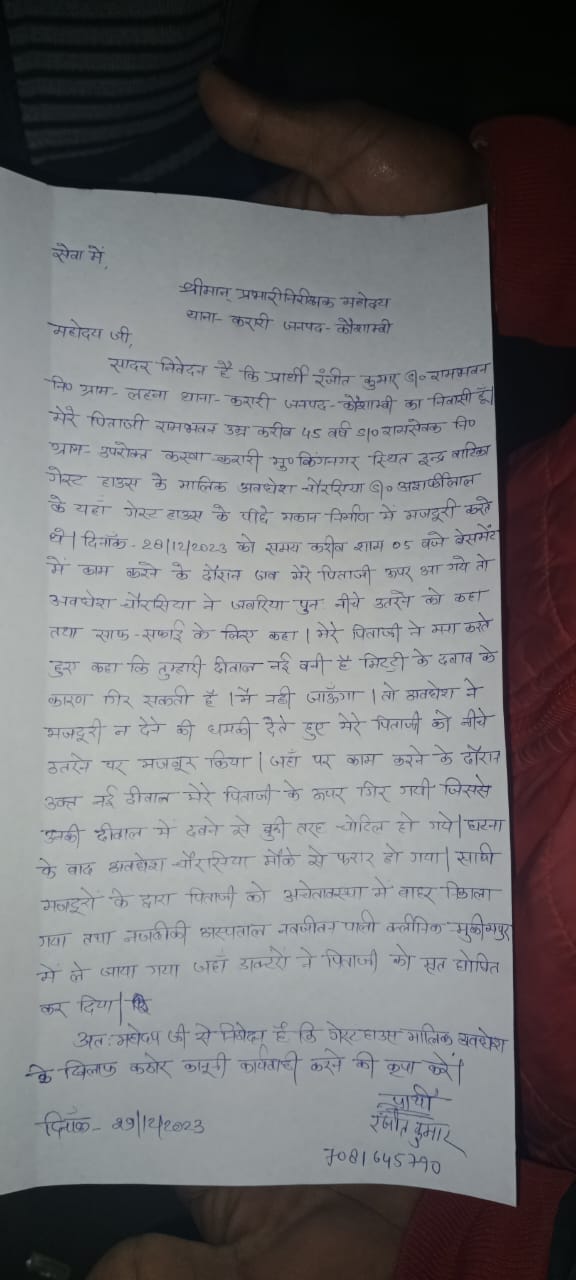 सेवा में,
श्रीमान् प्रभारी निरीक्षक महोदय
थाना- करारी जनपद- कौशाम्बी
महोदय जी,
सादर निवेदन है कि प्रार्थी रंजीत कुमार S/o रामभवन
नि० ग्राम- लहना थाना- करारी जनपद- कौशाम्बी का निवासी हूँ।
मेरे पिताजी रामभवन उम्र करीब 45 वर्ष S/o रामसेवक नि०
ग्राम- उपरोक्त कस्बा करारी मु० किंगनगर स्थित इन्द्र वाटिका
गेस्ट हाउस के मालिक अवधेश चौरसिया S/o अशर्फीलाल
के यहाँ गेस्ट हाउस के पीछे मकान निर्माण में मजदूरी करते
थे। दिनाँक- 28/12/2023 को समय करीब शाम 05 बजे बेसमेंट
में काम करने के दौरान जब मेरे पिताजी ऊपर आ गये तो
अवधेश चौरसिया ने जबरिया पुनः नीचे उतरने को कहा
तथा साफ-सफाई के लिए कहा। मेरे पिताजी ने मना करते
हुए कहा कि तुम्हारी दीवाल नई बनी है मिट्टी के दबाव के
कारण गिर सकती है। मैं नही जाऊँगा। तो अवधेश ने
मजदूरी न देने की धमकी देते हुए मेरे पिताजी को नीचे
उतरने पर मजबूर किया। जहाँ पर काम करने के दौरान
उक्त नई दीवाल मेरे पिताजी के ऊपर गिर गयी जिससे
उनकी दीवाल में दबने से बुरी तरह चोटिल हो गये। घटना
के बाद अवधेश चौरसिया मौके से फरार हो गया। साथी
मजदूरों के द्वारा पिताजी को अचेतावस्था में बाहर निकाला
गया तथा नजदीकी अस्पताल नवजीवन पाली क्लीनिक मुकीमपुर
में ले जाया गया जहाँ डाक्टरों ने पिताजी को मृत घोषित
कर दिया।
अतः महोदय जी से निवेदन है कि गेस्ट हाउस मालिक अवधेश
के खिलाफ कठोर कानूनी कार्यवाही करने की कृपा करें।
प्रार्थी
दिनाँक- 29/12/2023
रंजीत कुमार
7081645790